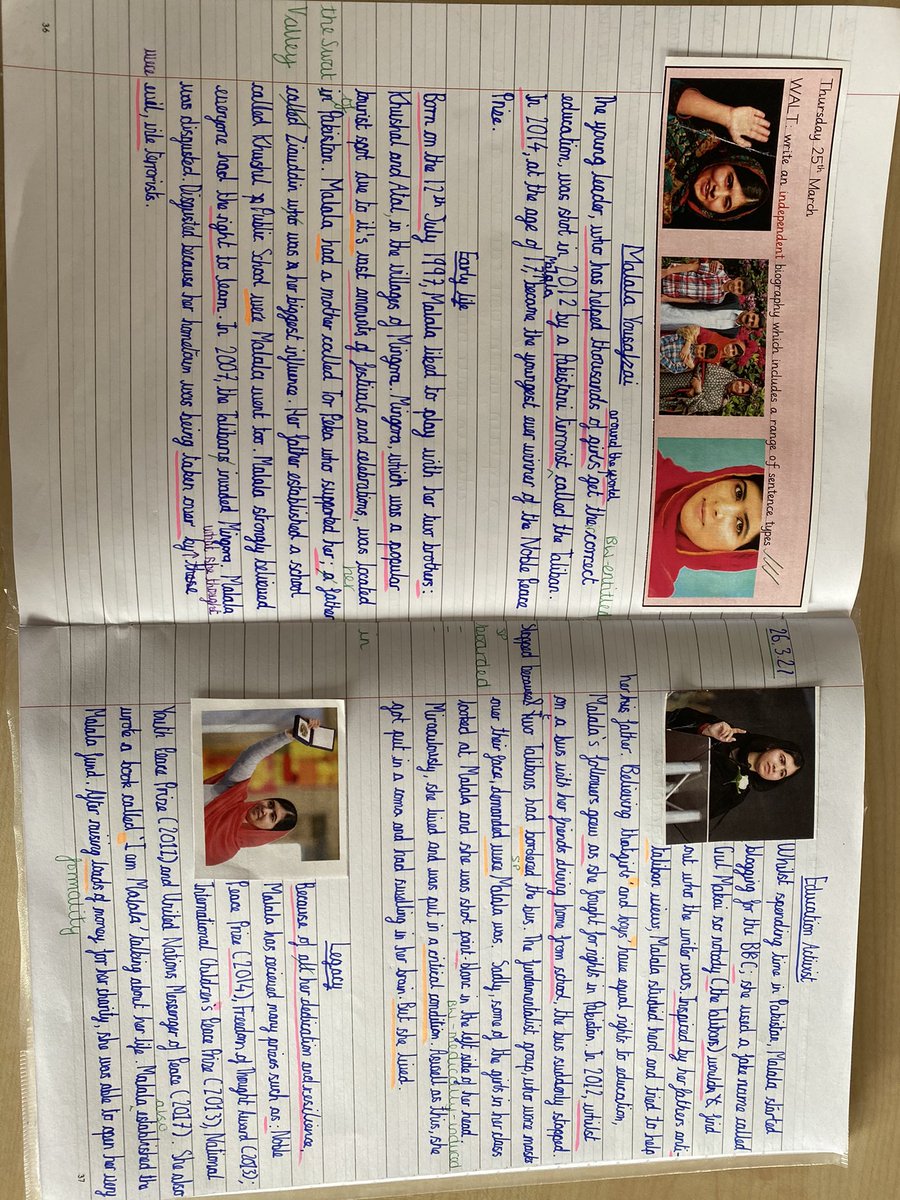 Thursday 25th March
WALT: write an independent biography which includes a range of sentence types
Malala Yousafzai
around the world
BW-entitled
The young leader, who has helped thousands of girls get the correct
education, was shot in 2012 by a Pakistani terrorist called the Taliban.
Malala
In 2014, at the age of 17, became the youngest ever winner of the Noble Peace
Prize.
Early life
Born on the 12th July 1997, Malala liked to play with her two brothers:
Khushal and Atal, in the villages of Mingora. Mingora, which was a popular
tourist spot due to it's vast amounts of festivals and celebrations, was located
the Swat
Valley
her
in Pakistan. Malala had a mother called Tor Pekai who supported her; a father
called Ziauddin who was her biggest influence. Her father established a school
called Khushal Public School were Malala went too. Malala strongly believed
everyone had the right to learn. In 2007, the Talibans, invaded Mingora. Malala
what she thought
was disgusted. Disgusted because her hometown was being taken over by those
were evil, vile terrorists.
36
26.3.27
Education Activist
Whilst spending time in Pakistan, Malala started
blogging for the BBC; she used a fake name called
Gul Makai so nobody (the Talibans) would find
out who the writer was. Inspired by her fathers anti-
Taliban views, Malala studied hard and tried to help
her his father. Believing that girls' and boys' have equal rights to education,
Malala's followers grew as she fought for rights in Pakistan. In 2012, whilst
on a bus with her friends driving home from school, the bus sundenly stopped.
Stopped because four Talibans had borowed the bus. The fundamentalist group, who wore masks
sp
sp
boarded
over their face, demanded were Malala was. Sadly, some of the girls in her class
looked at Malala and she was shot point-blanc in the left side of her head.
BW-medically-induced
Miraculously, she lived and was put in a critical condition. Aswell as this, she
in
got put in a coma and had swelling in her brain. But she lived.
Legacy
Because of all her dedication and resilience,
Malala has recieved many prizes such as: Noble
Peace Prize (2014), Freedom of Thought Award (2013);
International Children's Peace Prize (2013), National
Youth Peace Prize (2017), and United Nations Messenger of Peace (2017). She also
wrote a book called 'I am Malala' talking about her life. Malala established the
also
Malala fund. After raising loads of money for her charity, she was able to open her very
formality
37